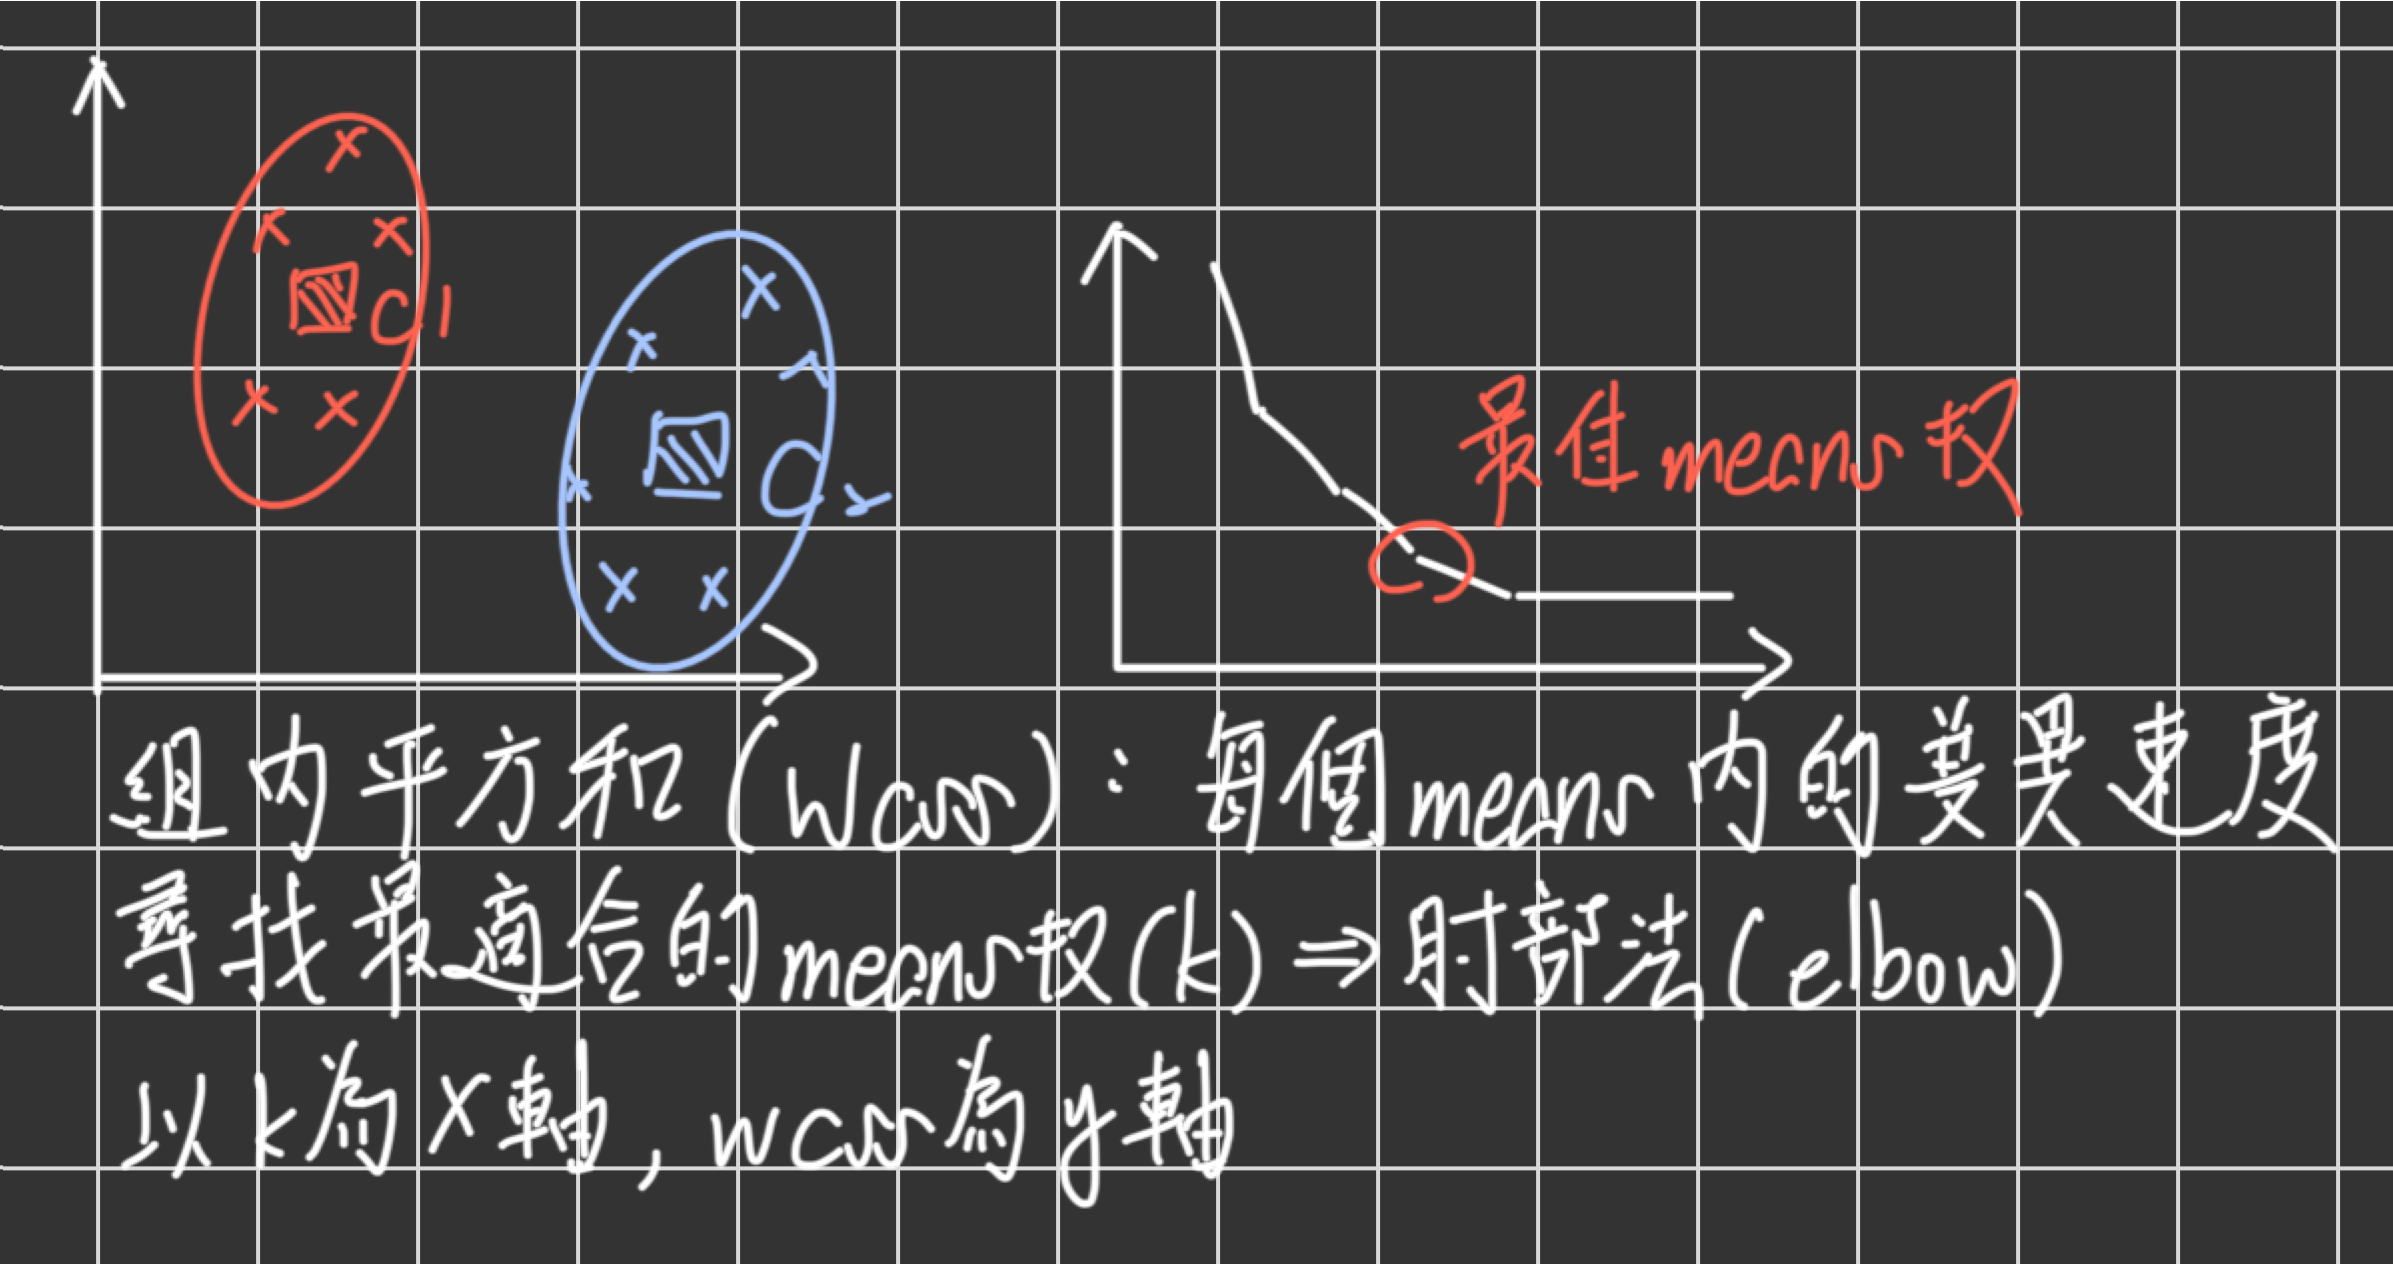 C1
C2
最佳means 权
組内平方和(Wcss)：每個means内的差異速度
尋找最適合的means权(k)⇒肘部法(elbow)
以k為x軸,wcss為y軸